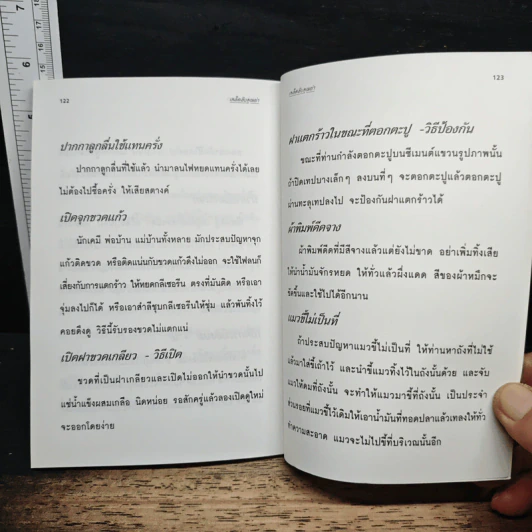 123
ปากกาลูกลื่นใช้แทนครั่ง
ปากกาลูกลื่นที่ใช้แล้ว นำมาลนไฟหยดแทนครั่งได้เลย
ไม่ต้องไปซื้อครั่ง ให้เสียสตางค์
เปิดจุกขวดแก้ว
นักเคมี พ่อบ้าน แม่บ้านทั้งหลาย มักประสบปัญหาจุก
แก้วติดขวด หรือติดแน่นกับขวดแก้วดึงไม่ออก จะใช้ไฟลนก็
เสี่ยงกับการแตกร้าว ให้หยดกลีเซอรีน ตรงที่มันติด หรือเอา
จุ่มลงไปก็ได้ หรือเอาสำลีชุบกลีเซอรีนให้ชุ่ม แล้วพันทิ้งไว้
คอยดึงดู วิธีนี้รับรองขวดไม่แตกแน่
เปิดฝาขวดเกลียว - วิธีเปิด
ขวดที่เป็นฝาเกลียวและเปิดไม่ออกให้นำขวดนั้นไป
แช่น้ำแข็งผสมเกลือ นิดหน่อย รอสักครู่แล้วลองเปิดดูใหม่
จะออกโดยง่าย
123
ฝาแตกร้าวในขณะที่ตอกตะปู -วิธีป้องกัน
ขณะที่ท่านกำลังตอกตะปูบนซีเมนต์แขวนรูปภาพนั้น
ถ้าปิดเทปบางเล็กๆ ลงบนที่ๆ จะตอกตะปูแล้วตอกตะปู
ผ่านทะลุเทปลงไป จะป้องกันฝาแตกร้าวได้
ผ้าพิมพ์ดีดจาง
ผ้าพิมพ์ดีดที่มีสีจางแล้วแต่ยังไม่ขาด อย่าเพิ่มทิ้งเสีย
ให้นำน้ำมันจักรหยด ให้ทั่วแล้วผึ่งแดด สีของผ้าหมึกจะ
ชัดขึ้นและใช้ไปได้อีกนาน
แมวขี้ไม่เป็นที่
ถ้าประสบปัญหาแมวขี้ไม่เป็นที่ ให้ท่านหาถังที่ไม่ใช้
แล้วมาใส่ขี้เถ้าไว้ และนำขี้แมวทิ้งไว้ในถังนั้นด้วย และจับ
แมวให้ดมที่ถังนั้น จะทำให้แมวมาขี้ที่ถังนั้น เป็นประจำ
ส่วนรอยที่แมวขี้ไว้เดิมให้เอาน้ำมันที่ทอดปลาแล้วเทลงให้ทั่ว
ทำความสะอาด แมวจะไม่ไปขี้ที่บริเวณนั้นอีก